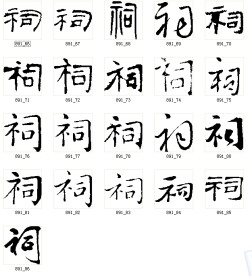 祠 祠 祠 祠 祠
891_66 891_67 891_68 891_69 891_70
祠 祠 祠 祠 祠
891_71 891_72 891_73 891_74 891_75
祠 祠 祠 祠 祠
891_76 891_77 891_78 891_79 891_80
祠 祠 祠 祠 祠
891_81 891_82 891_83 891_84 891_85
祠
891_86